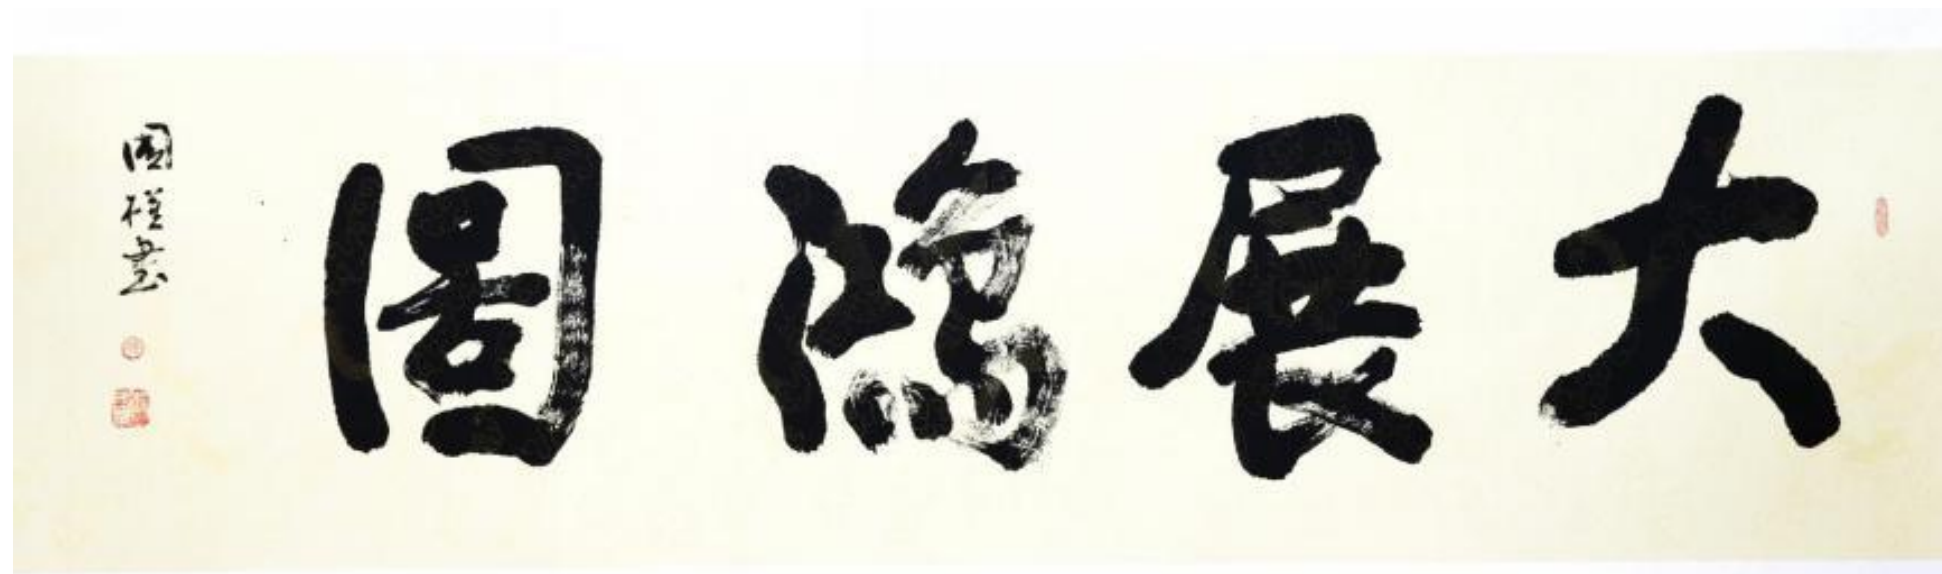 大展鴻圖
國書